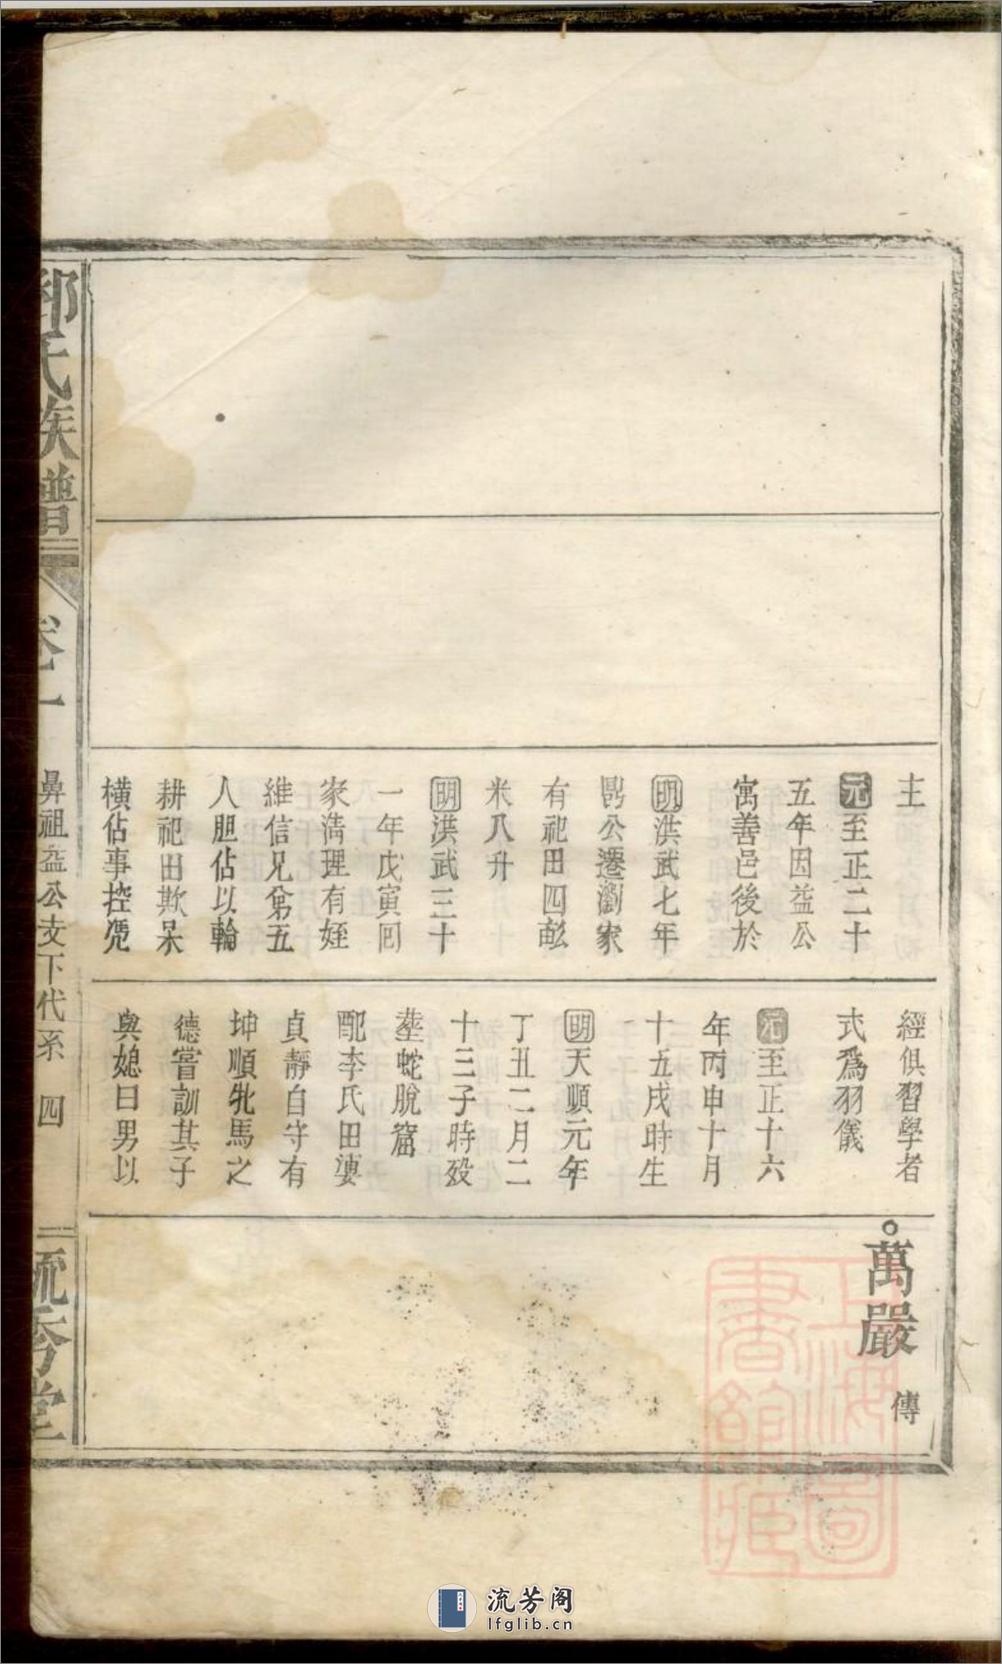 主
元至正二十
五年因益公
寓善邑後於
明洪武七年
昺公遷瀏家
有祀田四畝
米八升
明洪武三十
一年戊寅囘
家淸理有姪
維信兄弟五
人胆佔以輪
耕祀田欺呆
横佔事控凴
經俱習學者
式爲羽儀
元至正十六
年丙申十月
十五戌時生
明天順元年
丁丑二月二
十三子時殁
塟蛇脫窩
配李氏田婆
貞靜自守有
坤順牝馬之
德嘗訓其子
與媳曰男以
萬嚴 傳
氏族譜
卷一
鼻祖益公支下代系 四
流秀堂
上海圖
書館藏
流芳阁
lfglib.cn